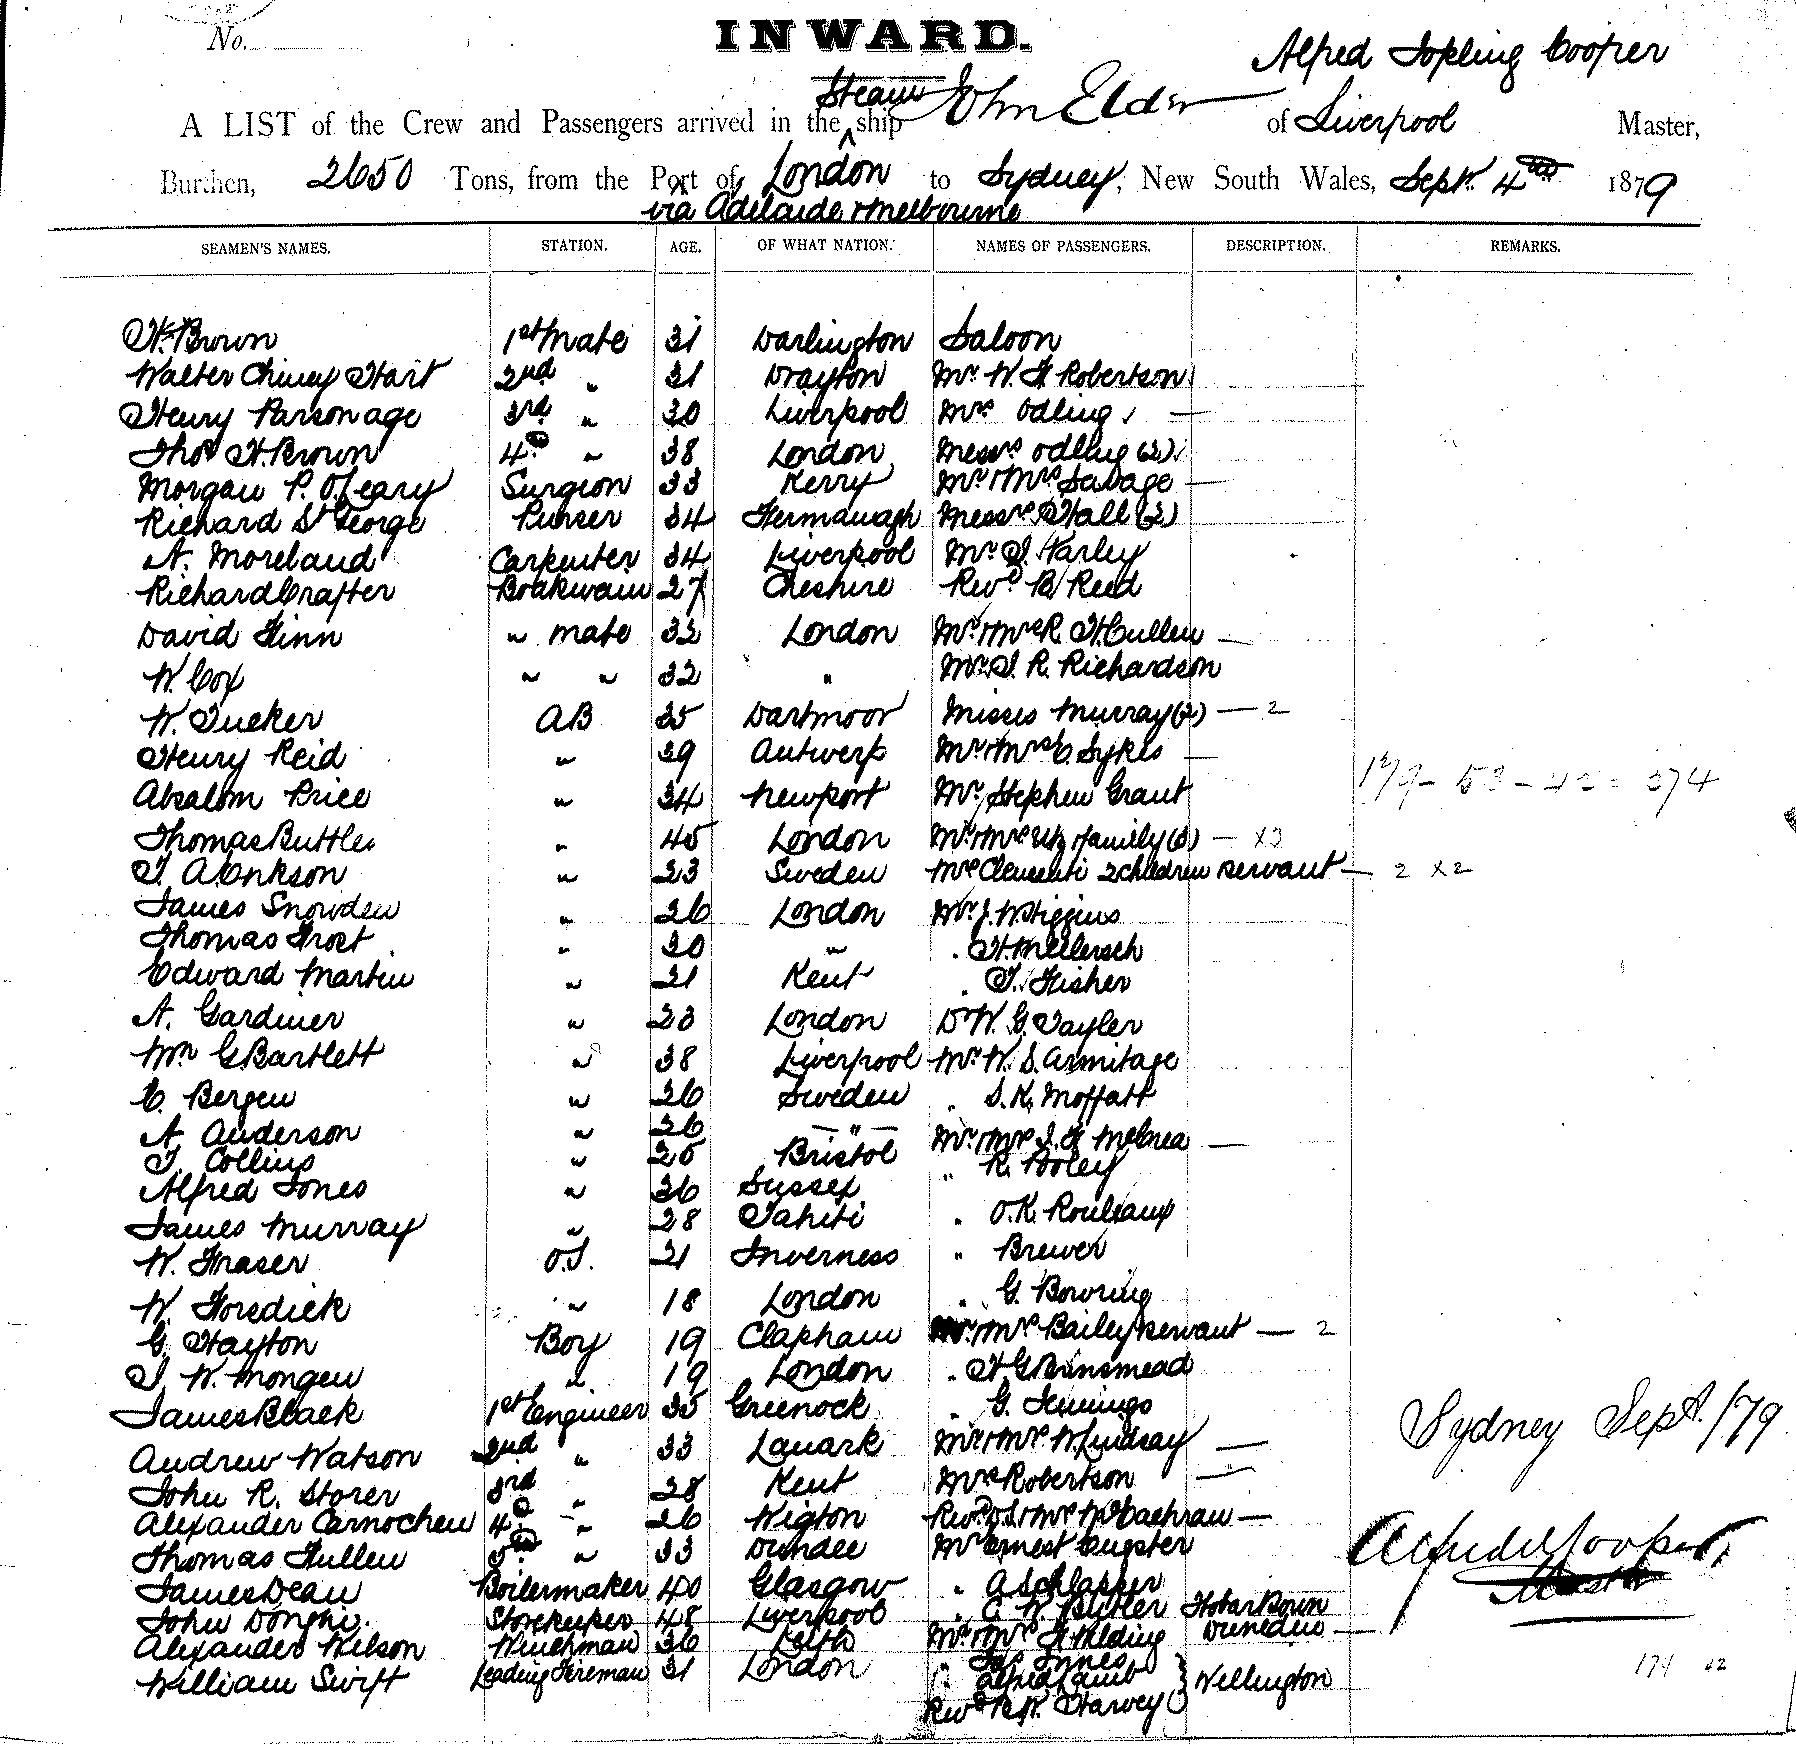 No.
INWARD.
Alfred Topling Cooper
Steam
A LIST of the Crew and Passengers arrived in the ship John Elder of Liverpool Master,
Burthen, 2650 Tons, from the Port of London to Sydney, New South Wales, Sept. 4th 1879
via Adelaide & Melbourne
SEAMEN'S NAMES. STATION. AGE. OF WHAT NATION. NAMES OF PASSENGERS. DESCRIPTION. REMARKS.
H. Brown 1st Mate 31 Darlington Saloon
Walter Chivey Hart 2nd " 31 Drayton Mr. W. F. Robertson
Henry Parsonage 3rd " 30 Liverpool Mrs Odling —
Thos H. Brown 4th " 38 London Messrs Odling (2)
Morgan P. O'Leary Surgeon 33 Kerry Mr & Mrs Savage —
Richard St George Purser 34 Fermanagh Messrs Hall (2)
A. Moreland Carpenter 34 Liverpool Mr. Harley
Richard Crafter Boatswain 27 Cheshire Revd B. Reed
David Finn " Mate 32 London Mr & Mrs R. H. Cullen —
W. Cox " " 32 " Mr. R. Richardson
W. Tucker AB 35 Dartmoor Misses Murray (2) — 2
Henry Reid " 39 Antwerp Mr & Mrs C Sykes —
Absalom Price " 34 Newport Mr Stephen Grant
Thomas Buttler " 45 London Mr & Mrs Utz & family (3) — x3
" 23 Sweden Mrs Clementi 2 children servant — 2 x2
James Snowden " 26 London Mr J. W. Higgins
Thomas Frost " 20 " " H. Mellersch
Edward Martin " 21 Kent " Fisher
A. Gardiner " 23 London Dr W. G. Tayler
Wm G Bartlett " 38 Liverpool Mr W. S. Armitage
C. Bergen " 26 Sweden " S. K. Moffatt
A. Anderson " 26 — " — Mr & Mrs
T. Collins " 25 Bristol " R. Pooley
Alfred Jones " 36 Sussex
James Murray " 28 Tahiti " O. K. Rouleaux
W. Fraser O.S. 21 Inverness " Brewer
W. Foredick " 18 London " G. Bowring
G. Hayton Boy 19 Clapham Mr & Mrs Bailey & servant — 2
T. W. Mongen " 19 London " H G Brinsmead
James Black 1st Engineer 35 Greenock " G. Jennings
Andrew Watson 2nd " 33 Lanark Mr & Mrs W. Lindsay —
John R. Storer 3rd " 28 Kent Mrs Robertson —
Alexander Carnochen 4th " 26 Wigton Revd & Mrs McEachran —
Thomas Fullen 5th " 33 Dundee Mr Ernest Engster
James Dean Boilermaker 40 Glasgow " A Schlapfer
John Storekeeper 48 Liverpool " C W. Butler Hobart Town
Alexander Wilson Winchman 36 Leith Mr & Mrs Fielding Dunedin —
William Swift Leading Fireman 31 London " Jas Innes
" Alfred Lamb } Wellington
Revd B. W. Harvey
179 - 53 - 42 = 274
Sydney Sept. 1/79
Alfred Cooper
Master
174 02